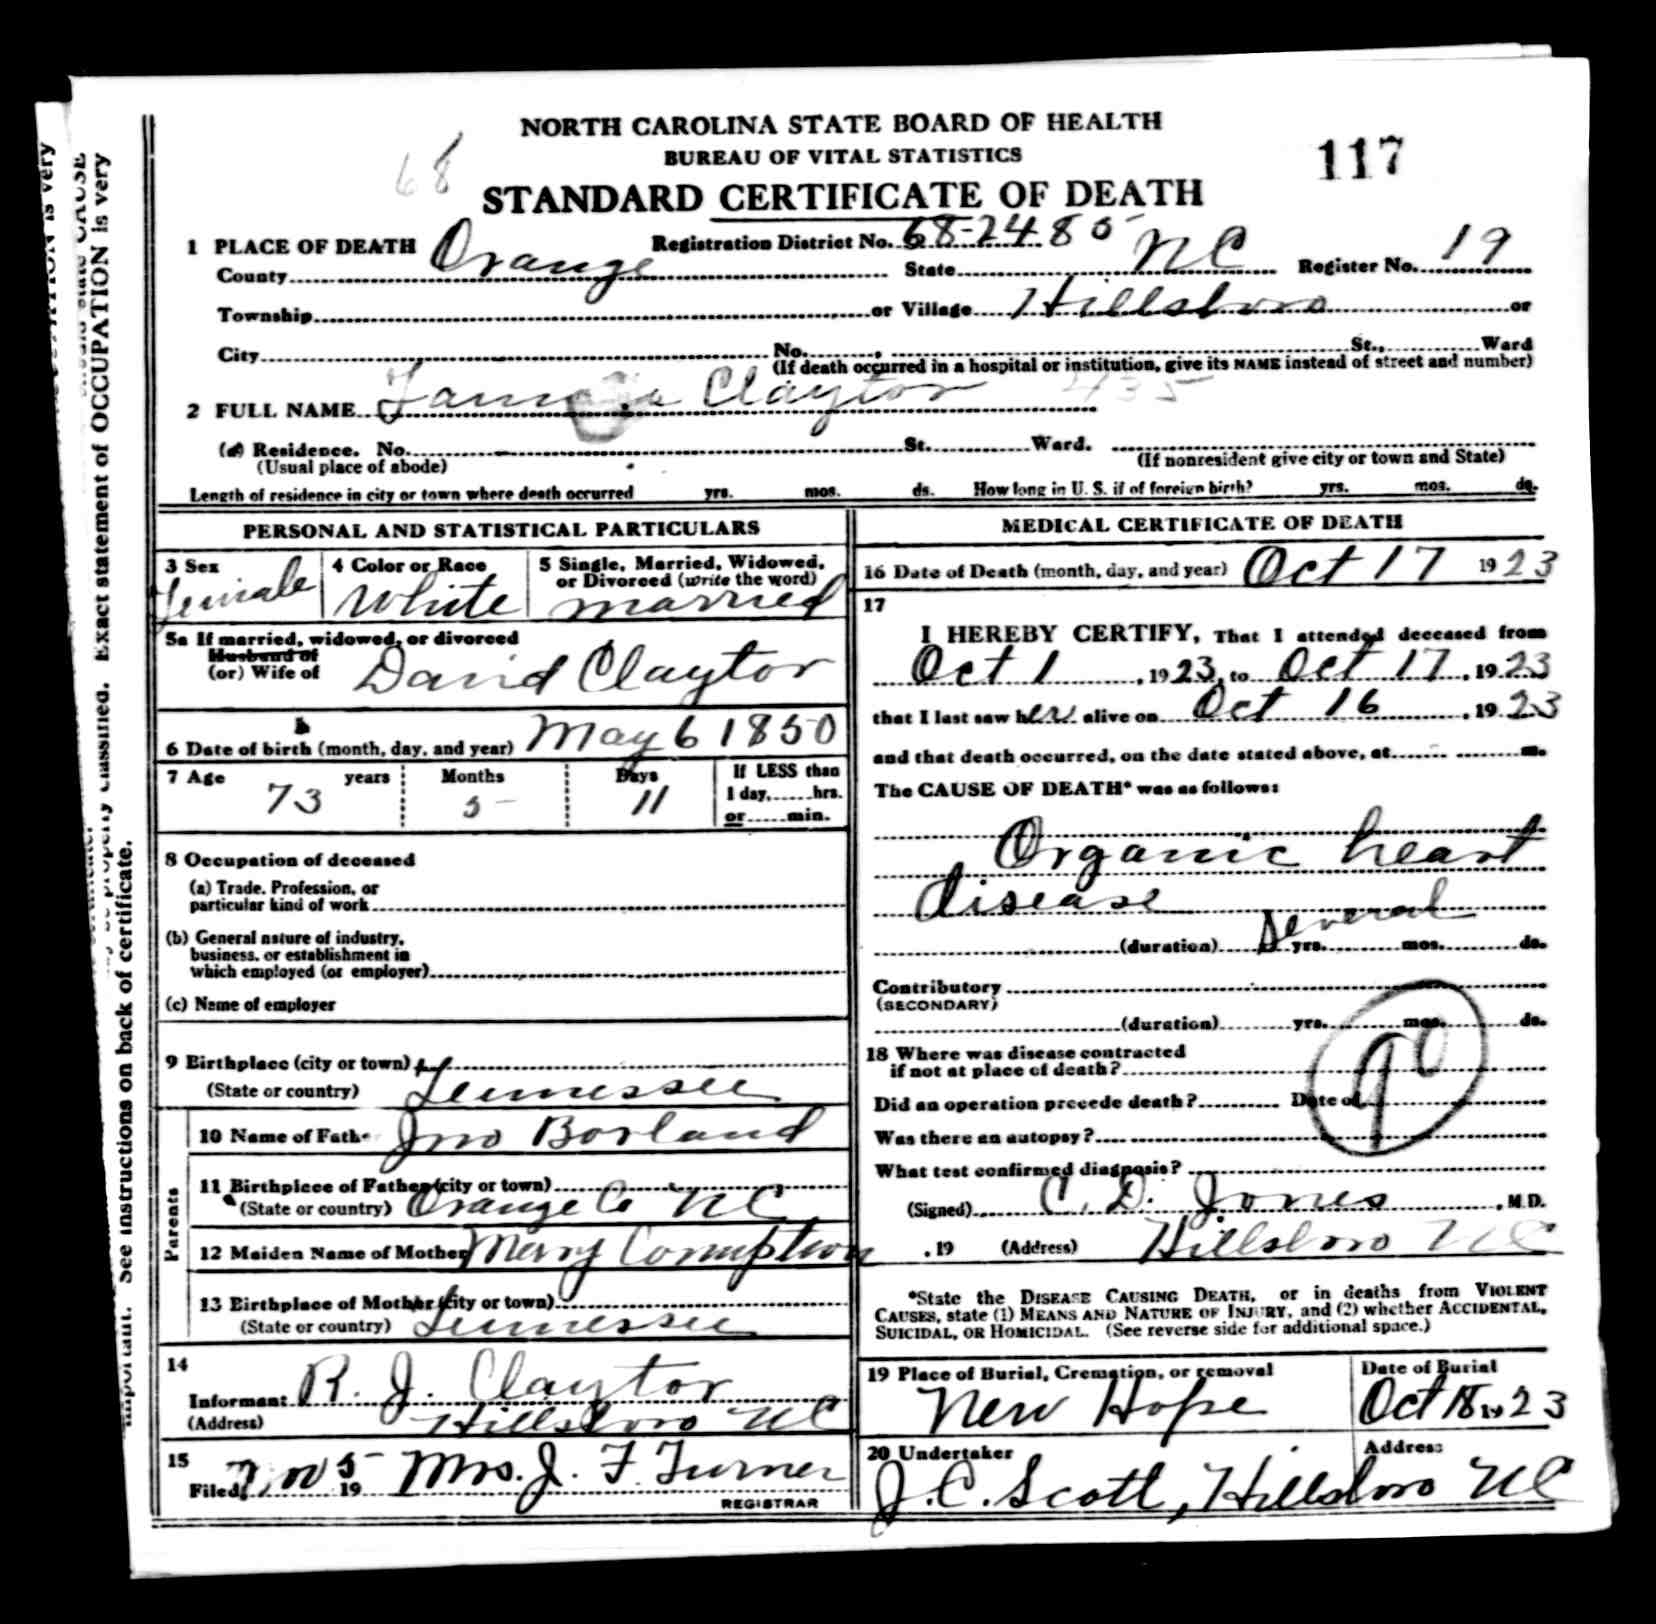 NORTH CAROLINA STATE BOARD OF HEALTH
BUREAU OF VITAL STATISTICS
68
117
STANDARD CERTIFICATE OF DEATH
1 PLACE OF DEATH Registration District No. 68-2485
County Orange State NC Register No. 19
Township or Village Hillsboro or
City No. , St., Ward
(If death occurred in a hospital or institution, give its NAME instead of street and number)
2 FULL NAME Claytor 435
(a) Residence. No. St. Ward.
(Usual place of abode) (If nonresident give city or town and State)
Length of residence in city or town where death occurred yrs. mos. ds. How long in U. S. if of foreign birth? yrs. mos. ds.
PERSONAL AND STATISTICAL PARTICULARS
3 Sex Female
4 Color or Race White
5 Single, Married, Widowed, or Divorced (write the word) married
5a If married, widowed, or divorced
Husband of
(or) Wife of David Claytor
6 Date of birth (month, day, and year) May 6 1850
7 Age years Months Days If LESS than
73 5 11 1 day, hrs.
or min.
8 Occupation of deceased
(a) Trade, Profession, or
particular kind of work
(b) General nature of industry,
business, or establishment in
which employed (or employer)
(c) Name of employer
9 Birthplace (city or town)
(State or country) Tennessee
Parents
10 Name of Father Jno Borland
11 Birthplace of Father (city or town)
(State or country) Orange Co NC
12 Maiden Name of Mother Mary Comption
13 Birthplace of Mother (city or town)
(State or country) Tennessee
14
Informant R. J. Claytor
(Address) Hillsboro NC
15
Filed Nov 5 19 Mrs. J. F. Turner
REGISTRAR
MEDICAL CERTIFICATE OF DEATH
16 Date of Death (month, day, and year) Oct 17 1923
17
I HEREBY CERTIFY, That I attended deceased from
Oct 1, 1923, to Oct 17, 1923
that I last saw her alive on Oct 16, 1923
and that death occurred, on the date stated above, at m.
The CAUSE OF DEATH* was as follows:
Organic heart
disease
(duration) Several yrs. mos. ds.
Contributory
(SECONDARY)
(duration) yrs. mos. ds.
90
18 Where was disease contracted
if not at place of death?
Did an operation precede death? Date of
Was there an autopsy?
What test confirmed diagnosis?
(Signed) C. D. Jones, M.D.
, 19 (Address) Hillsboro NC
*State the DISEASE CAUSING DEATH, or in deaths from VIOLENT
CAUSES, state (1) MEANS AND NATURE OF INJURY, and (2) whether ACCIDENTAL,
SUICIDAL, OR HOMICIDAL. (See reverse side for additional space.)
19 Place of Burial, Cremation, or removal Date of Burial
New Hope Oct 18, 1923
20 Undertaker Address
J. C. Scott, Hillsboro NC
Exact statement of OCCUPATION is very
important. See instructions on back of certificate.